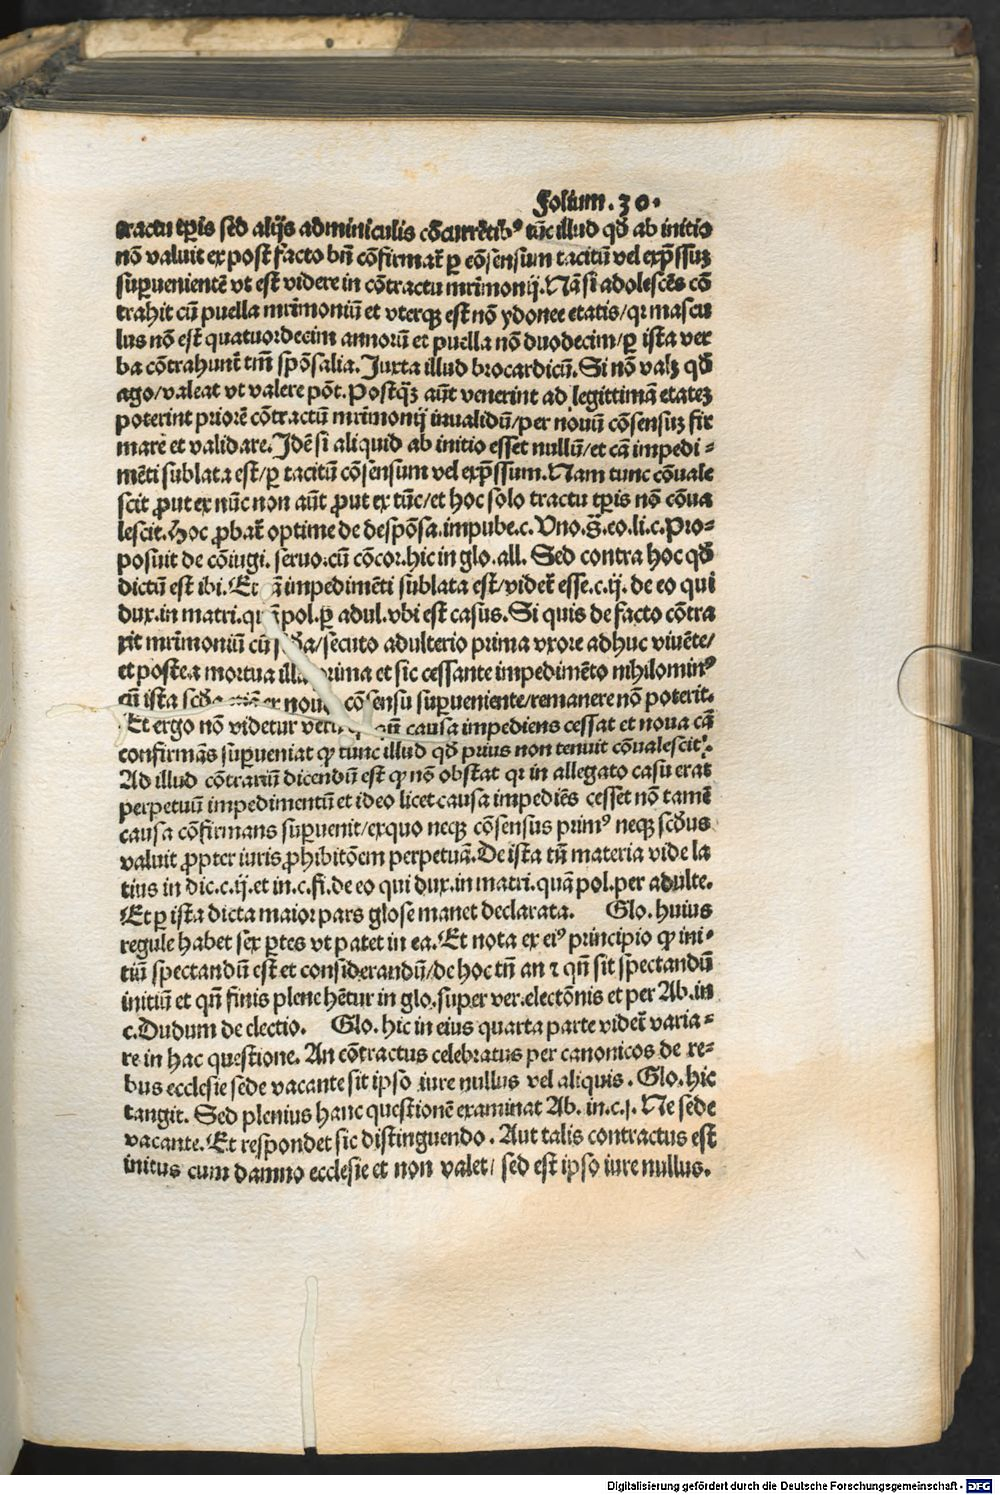 Folium.30.
tractu tp̄is sed alijs adminiculis cōcurrētib⁹ tūc illud qd̄ ab initio
nō valuit ex post facto bn̄ cōfirmat̄ ꝑ cōsensum tacitū vel exp̄ssuꝫ
suꝑuenientē vt est videre in cōtractu mr̄imonij. Nā si adolescēs cō
trahit cū puella mr̄imoniū et vterqꝫ est nō ydonee etatis/qꝛ mascu
lus nō est quatuordecim annorū et puella nō duodecim/ꝑ ista ver
ba cōtrahunt̄ tm̄ spōsalia. Juxta illud brocardicū. Si nō valꝫ qd̄
ago/valeat vt valere pōt. Postq̄ꝫ aūt venerint ad legittimā etateꝫ
poterint priorē cōtractū mr̄imonij inualidū/per nouū cōsensuꝫ fir
mare et validare. Idē si aliquid ab initio esset nullū/et cā impedi-
mēti sublata est/ꝑ tacitū cōsensum vel exp̄ssum. Nam tunc cōuale
scit ꝓut ex nūc non aūt ꝓut ex tūc/et hoc solo tractu tp̄is nō cōua
lescit. Hoc ꝓbat̄ optime de despōsa.impube.c. Vno.§.eo.li.c. Pro-
posuit de cōiugi. seruo.cū cōcor.hic in glo.all. Sed contra hoc qd̄
dictū est ibi. Et cā impedimēti sublata est/videt̄ esse.c.ij. de eo qui
dux.in matri.quā pol.ꝑ adul.vbi est casus. Si quis de facto cōtra
xit mr̄imoniū cū scd̄a/secuto adulterio prima vxore adhuc viuēte/
et postea mortua illa prima et sic cessante impedimēto nihilomin⁹
cū ista scd̄a ex nouo cōsensu suꝑueniente/remanere nō poterit.
Et ergo nō videtur veru qn̄ causa impediens cessat et noua cā
confirmās suꝑueniat ꝙ tunc illud qd̄ prius non tenuit cōualescit.
Ad illud cōtrariū dicendū est ꝙ nō obstat qꝛ in allegato casu erat
perpetuū impedimentū et ideo licet causa impediēs cesset nō tamē
causa cōfirmans suꝑuenit/exquo neqꝫ cōsensus prim⁹ neqꝫ scd̄us
valuit ꝓpter iuris ꝓhibitōem perpetuā. De ista tn̄ materia vide la
tius in dic.c.ij.et in.c.fi.de eo qui dux.in matri.quā pol.per adulte.
Et ꝑ ista dicta maior pars glose manet declarata. Glo. huius
regule habet sex ꝑtes vt patet in ea. Et nota ex ei⁹ principio ꝙ ini-
tiū spectandū est et considerandū/de hoc tn̄ an ⁊ qn̄ sit spectandū
initiū et qn̄ finis plene hētur in glo.super ver.electōnis et per Ab.in
c. Dudum de electio. Glo. hic in eius quarta parte videt̄ varia-
re in hac questione. An cōtractus celebratus per canonicos de re-
bus ecclesie sede vacante sit ipso iure nullus vel aliquis. Glo. hic
tangit. Sed plenius hanc questionē examinat Ab. in.c.j. Ne sede
vacante. Et respondet sic distinguendo. Aut talis contractus est
initus cum damno ecclesie et non valet/ sed est ipso iure nullus.
Digitalisierung gefördert durch die Deutsche Forschungsgemeinschaft - DFG